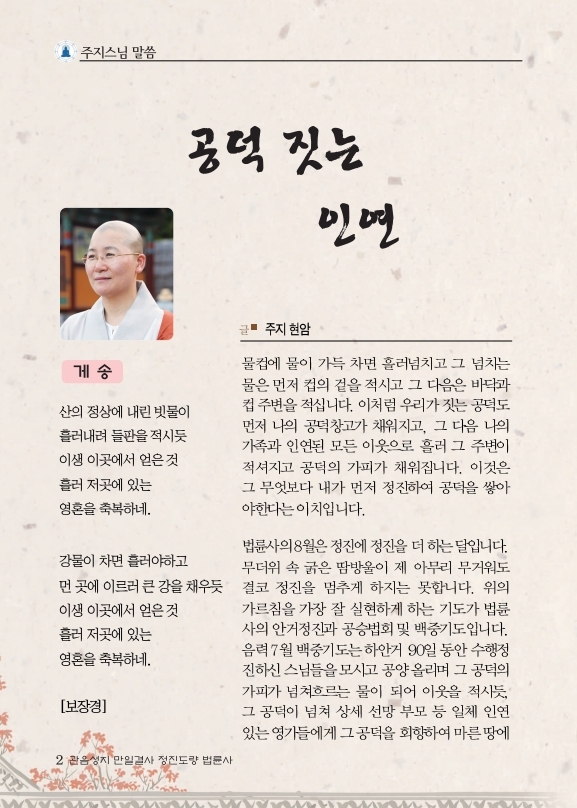 주지스님 말씀
공덕 짓는
인연
글■ 주지 현암
게 송
산의 정상에 내린 빗물이
흘러내려 들판을 적시듯
이생 이곳에서 얻은 것
흘러 저곳에 있는
영혼을 축복하네.
강물이 차면 흘러야하고
먼 곳에 이르러 큰 강을 채우듯
이생 이곳에서 얻은 것
흘러 저곳에 있는
영혼을 축복하네.
[보장경]
물컵에 물이 가득 차면 흘러넘치고 그 넘치는
물은 먼저 컵의 겉을 적시고 그 다음은 바닥과
컵 주변을 적십니다. 이처럼 우리가 짓는 공덕도
먼저 나의 공덕창고가 채워지고, 그 다음 나의
가족과 인연된 모든 이웃으로 흘러 그 주변이
적셔지고 공덕의 가피가 채워집니다. 이것은
그 무엇보다 내가 먼저 정진하여 공덕을 쌓아
야한다는 이치입니다.
법륜사의 8월은 정진에 정진을 더 하는 달입니다.
무더위 속 굵은 땀방울이 제 아무리 무거워도
결코 정진을 멈추게 하지는 못합니다. 위의
가르침을 가장 잘 실현하게 하는 기도가 법륜
사의 안거정진과 공승법회 및 백중기도입니다.
음력 7월 백중기도는 하안거 90일 동안 수행정
진하신 스님들을 모시고 공양 올리며 그 공덕의
가피가 넘쳐흐르는 물이 되어 이웃을 적시듯,
그 공덕이 넘쳐 상세 선망 부모 등 일체 인연
있는 영가들에게 그 공덕을 회향하여 마른 땅에
2 관음성지 만일결사 정진도량 법륜사